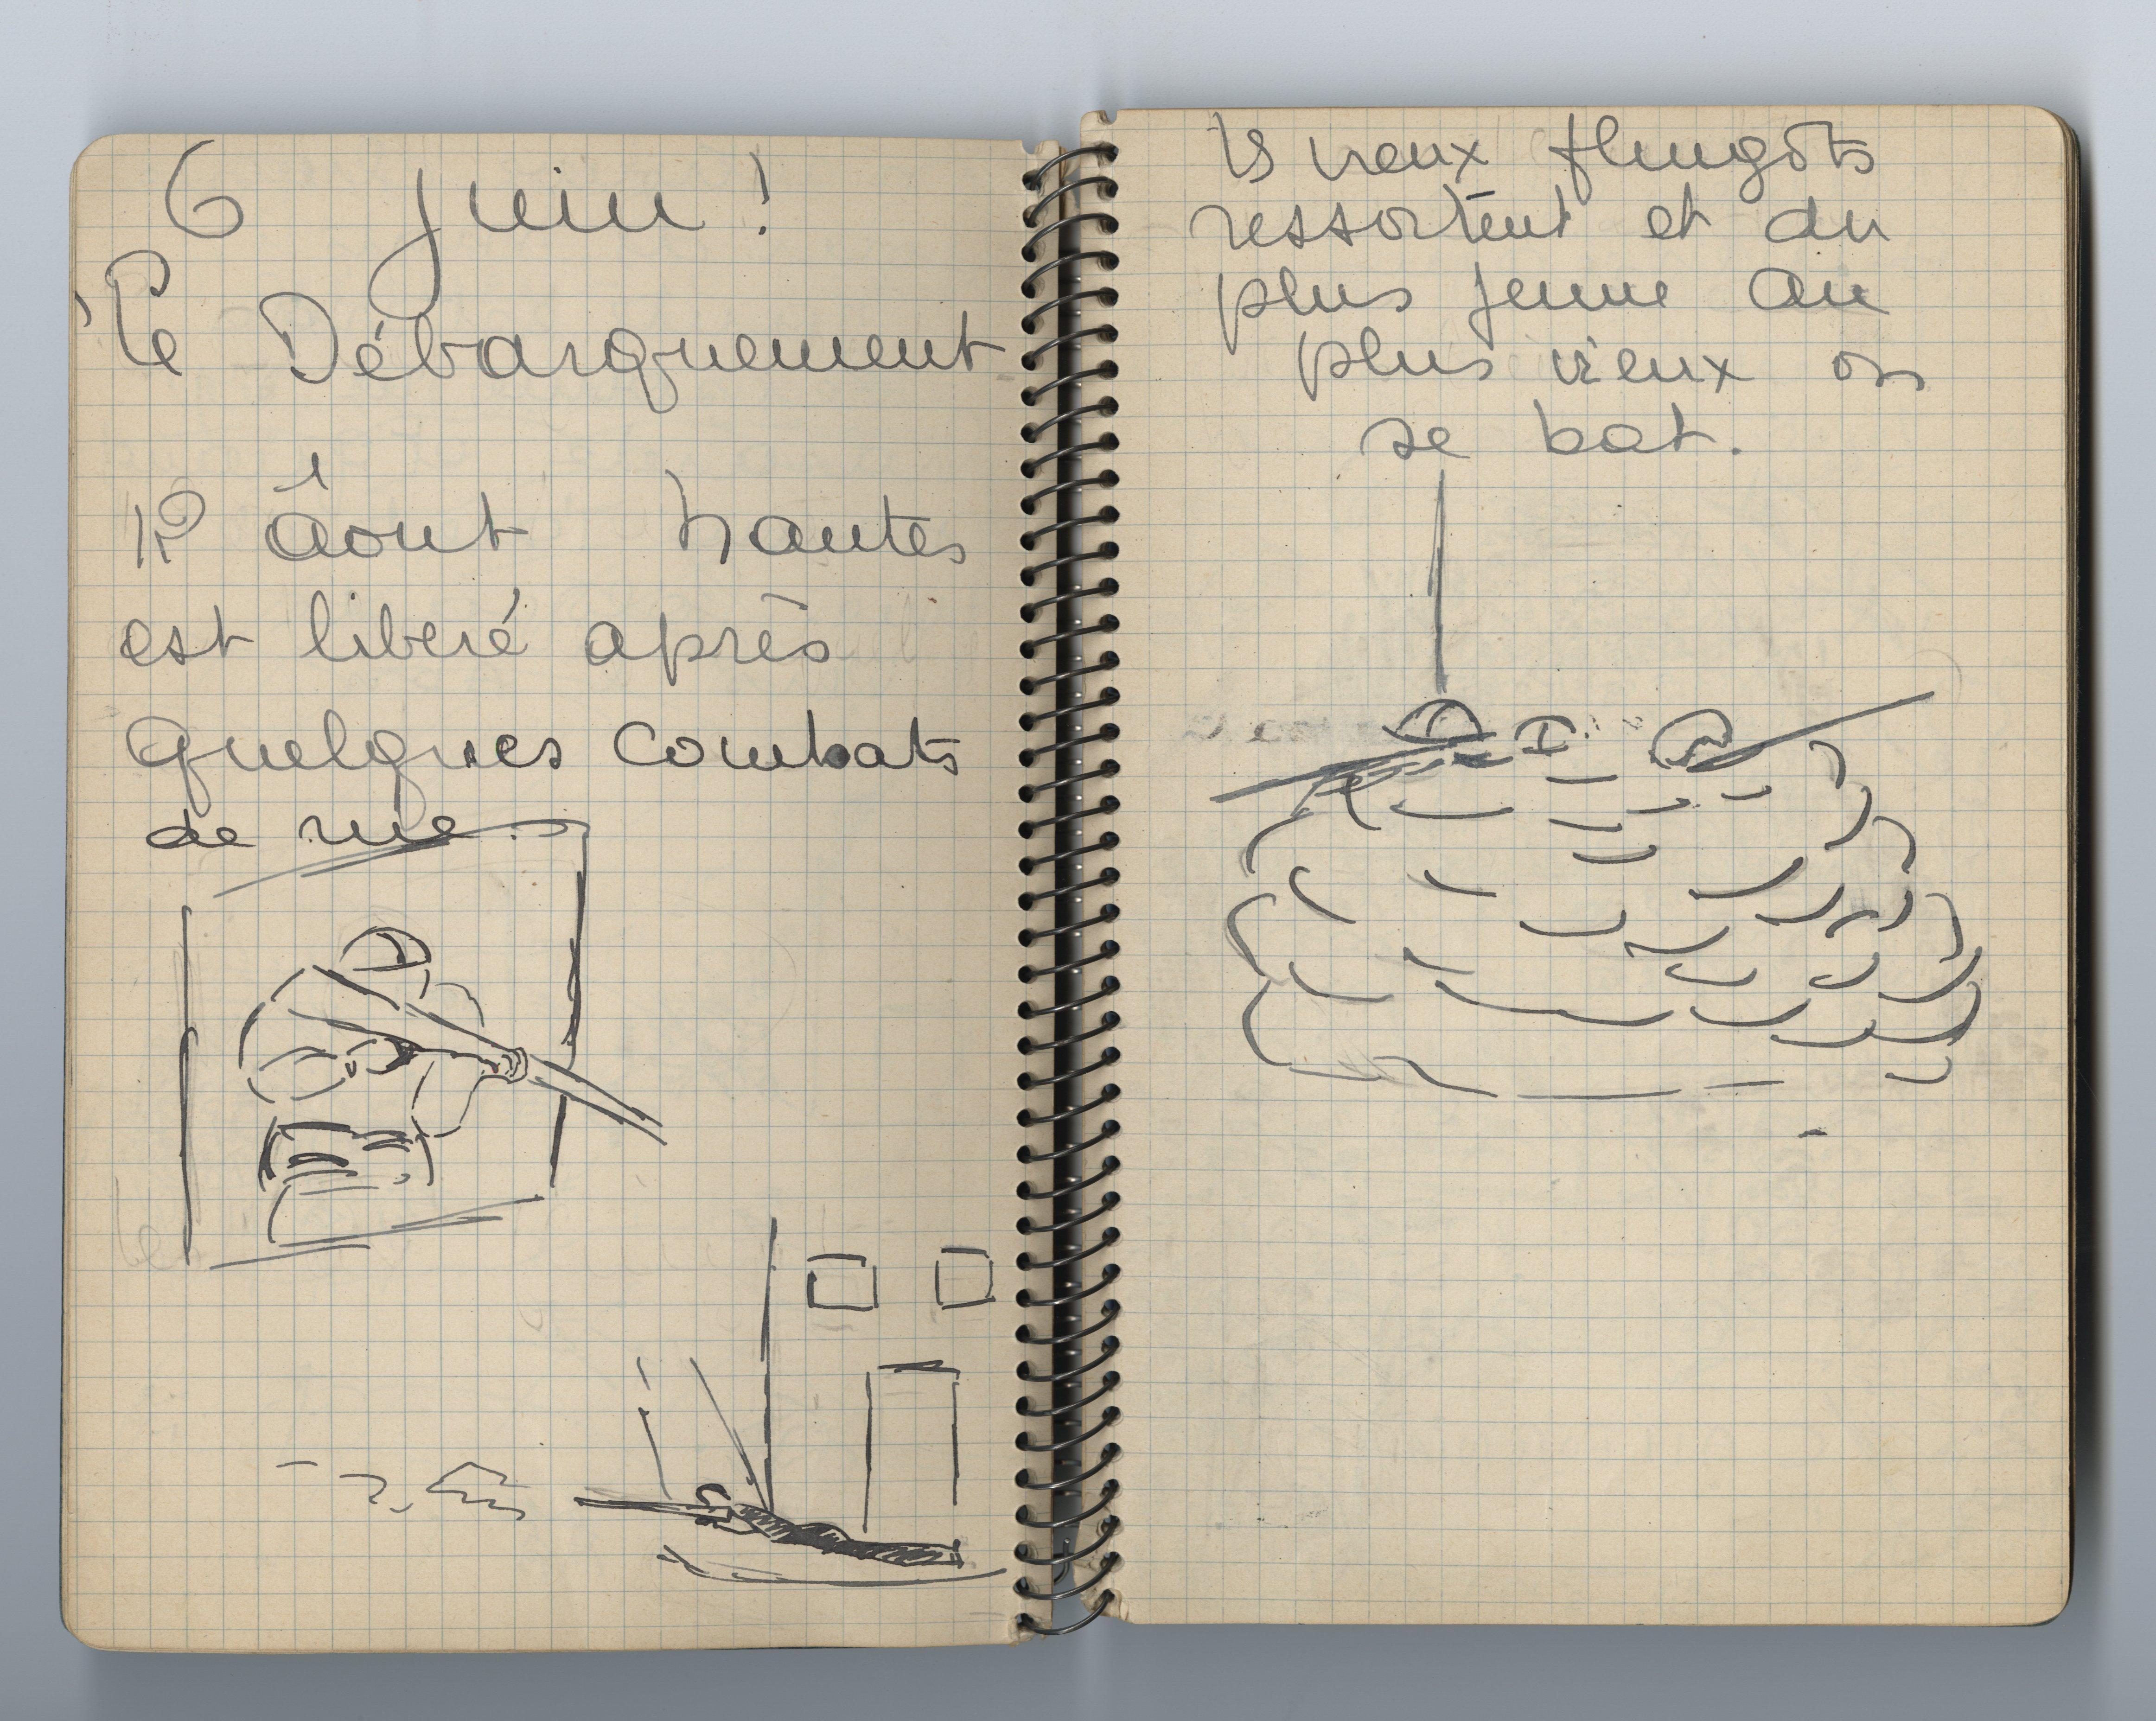 6 juin !
Le Débarquement
12 Âout Nantes
est liberé après
quelques combats
de rue.
ls vieux flingots
ressortent et du
plus jeune au
plus vieux on
se bat.